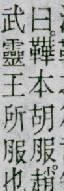 曰鞾本胡服趙
武靈王所服也